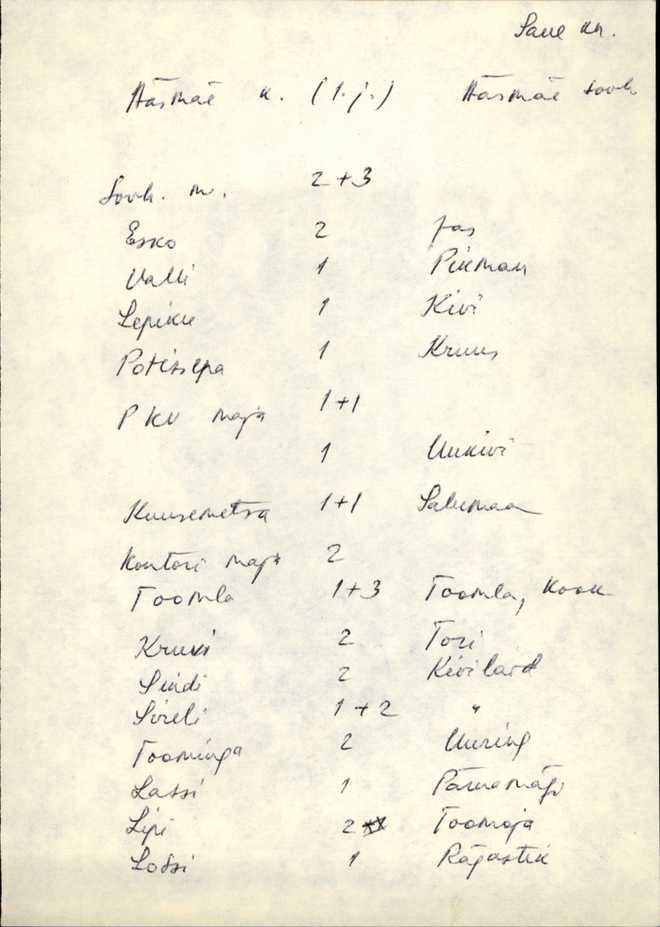 Saue kn.
Häsmäe k. (1.j.) Häsmäe sovh
Sovh. m. 2+3
Esko 2 Jas
Valli 1 Pikman
Lepiku 1 Kivi
Potissepa 1 Kruus
PKV maja 1+1
1 Uukivi
Kuusemetsa 1+1 Salumaa
Kontori maja 2
Toomla 1+3 Toomla, Kook
Kruusi 2 Tori
Sindi 2 Kivilard
Sireli 1+2 "
Toominga 2 Uuring
Lassi 1 Pärnamägi
Lipi 2 Toomoja
Lossi 1 Rägastik